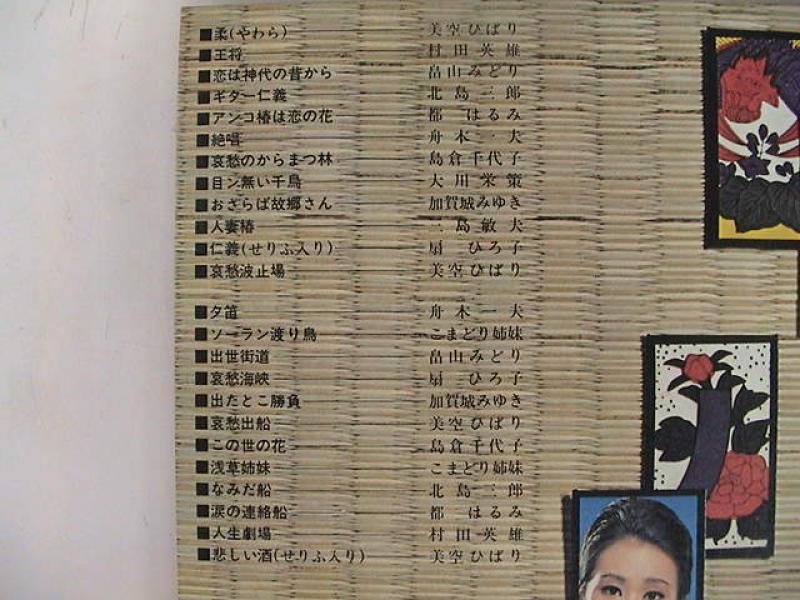 ■柔(やわら) 美空ひばり
■王将 村田英雄
■恋は神代の昔から 畠山みどり
■ギター仁義 北島三郎
■アンコ椿は恋の花 都はるみ
■絶唱 舟木一夫
■哀愁のからまつ林 島倉千代子
■目ン無い千鳥 大川栄策
■おさらば故郷さん 加賀城みゆき
■人妻椿 三島敏夫
■仁義(せりふ入り) 扇ひろ子
■哀愁波止場 美空ひばり
■夕笛 舟木一夫
■ソーラン渡り鳥 こまどり姉妹
■出世街道 畠山みどり
■哀愁海峡 扇ひろ子
■出たとこ勝負 加賀城みゆき
■哀愁出船 美空ひばり
■この世の花 島倉千代子
■浅草姉妹 こまどり姉妹
■なみだ船 北島三郎
■涙の連絡船 都はるみ
■人生劇場 村田英雄
■悲しい酒(せりふ入り) 美空ひばり